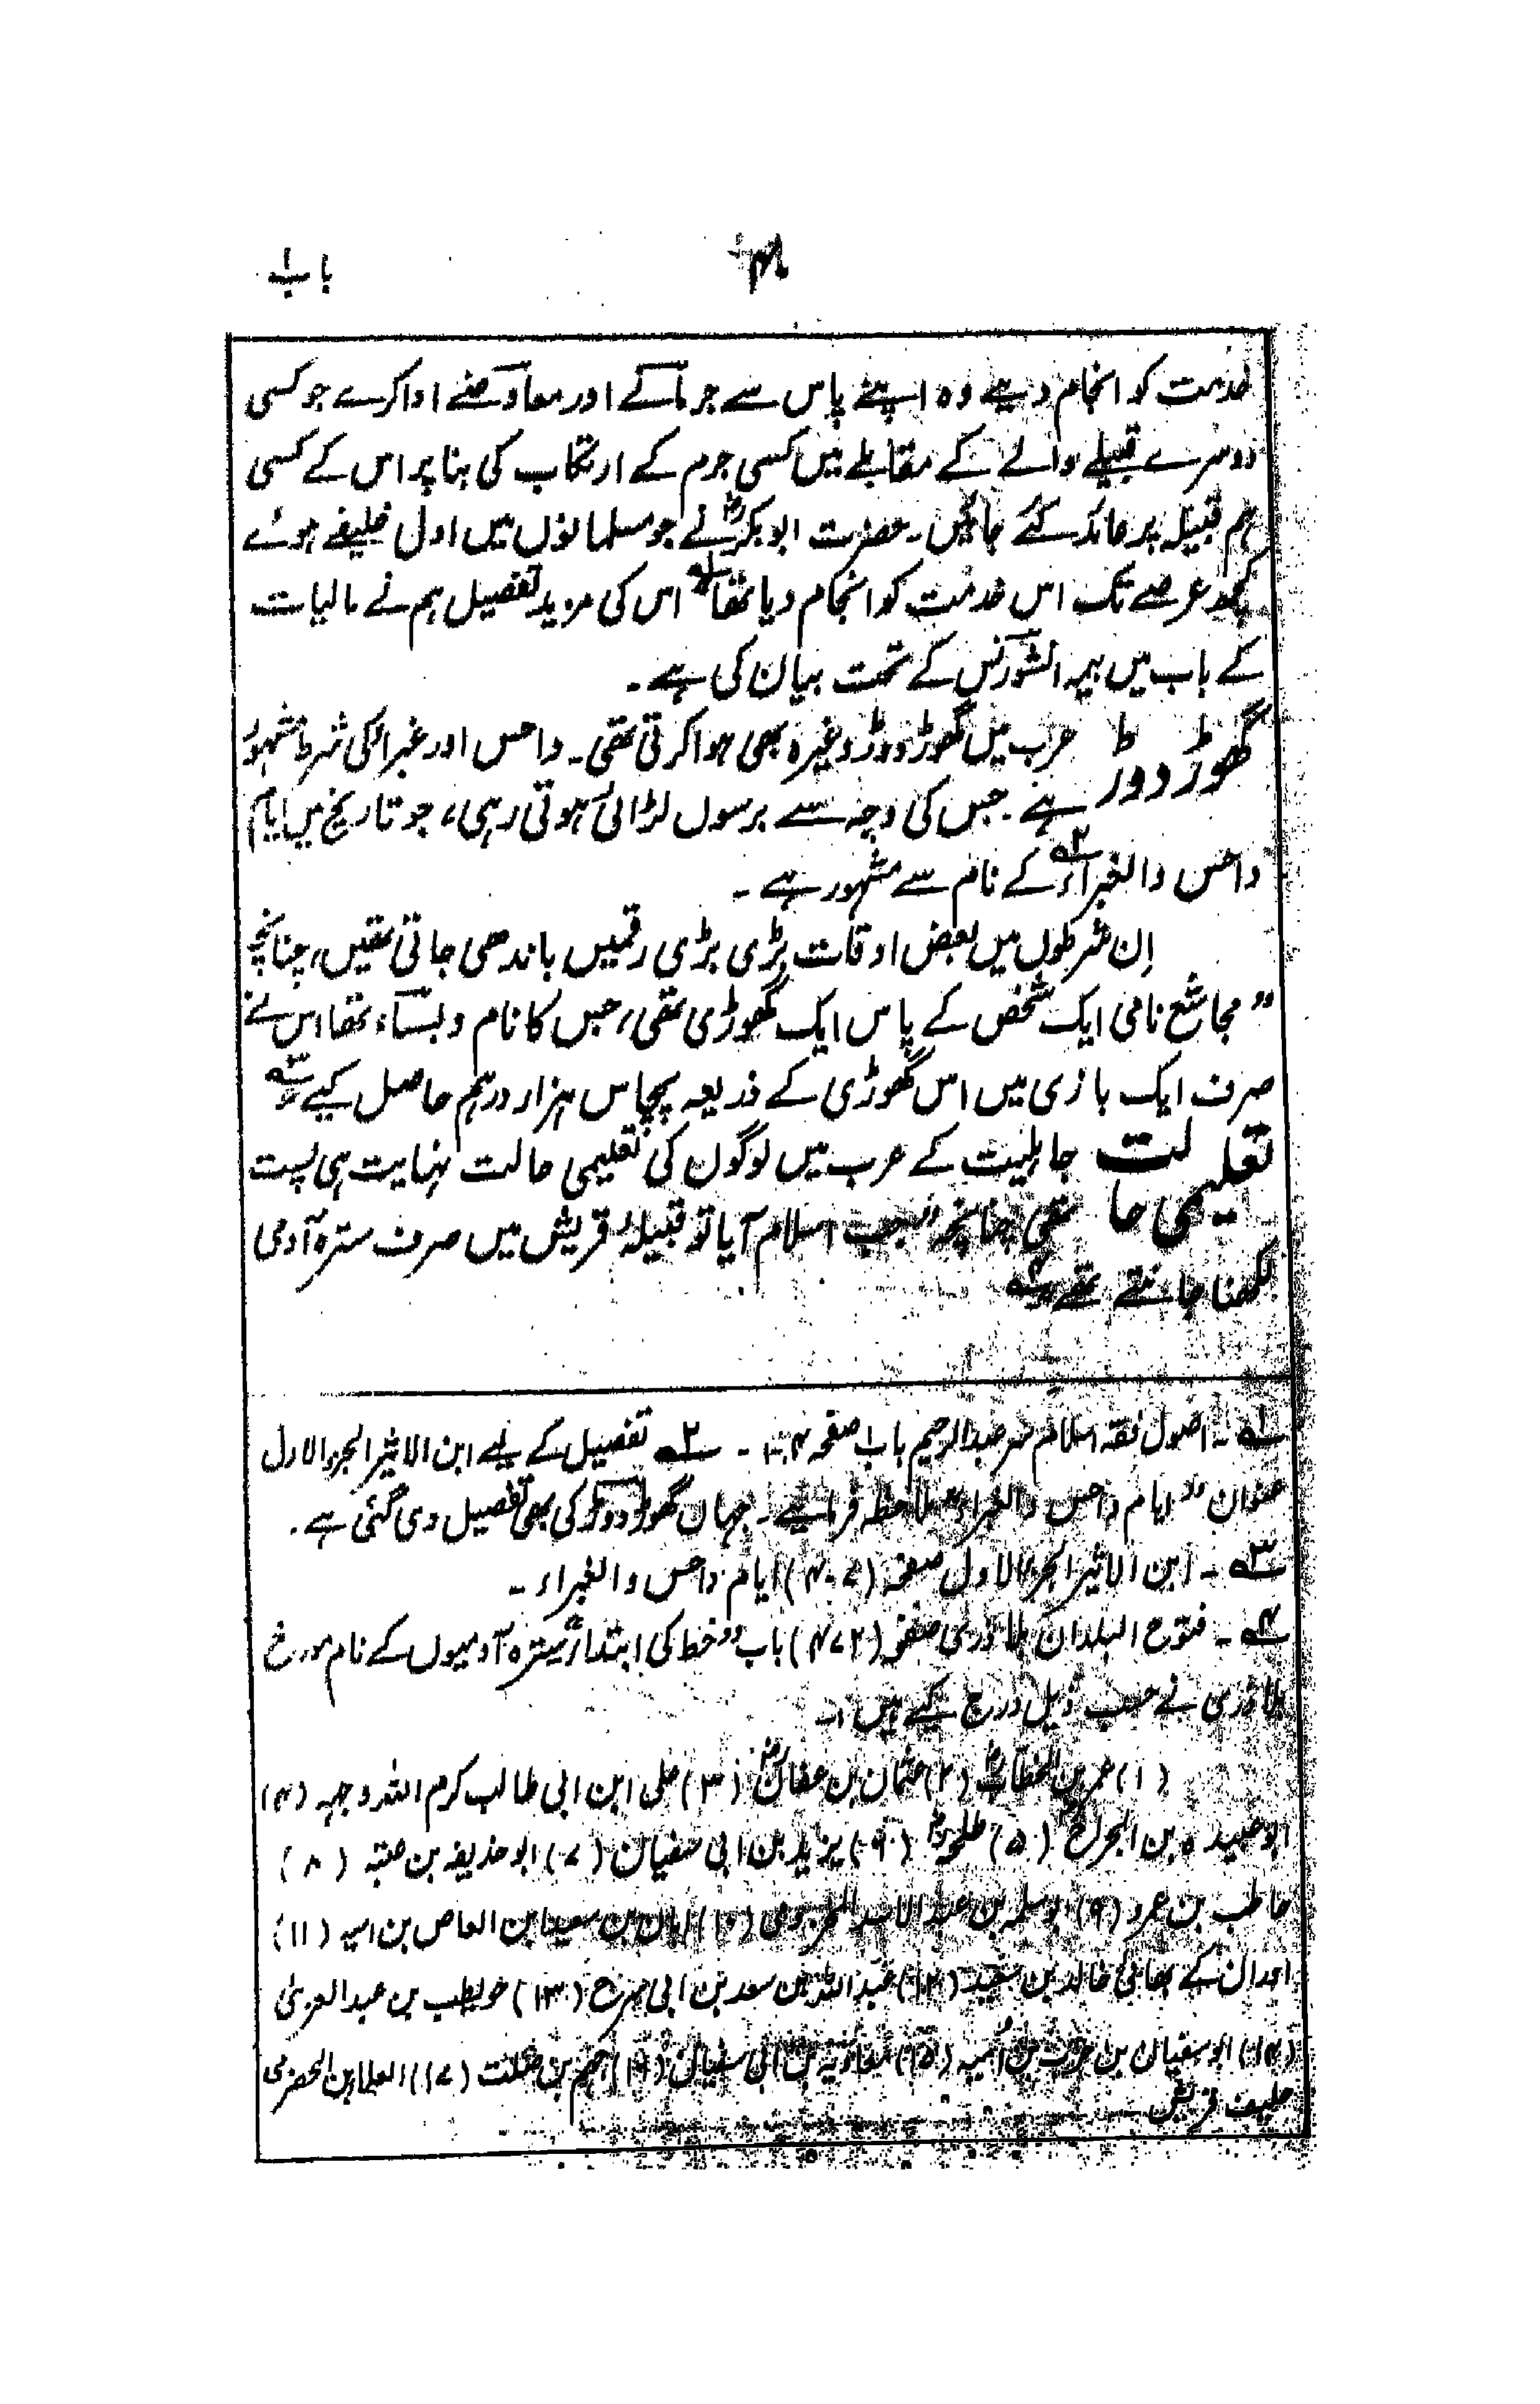 باب
خدمت کو انجام دیے وہ اپنے پاس سے جرمانے اور معاوضے ادا کرے جو کسی
دوسرے قبیلے والے کے مقابلے میں کسی جرم کے ارتکاب کی بنا پر اس کے کسی
ہم قبیلہ پر عائد کئے جائیں۔ حضرت ابوبکرؓ نے جو مسلمانوں میں اول خلیفے ہوئے
کچھ عرصے تک اس خدمت کو انجام دیا تھا ۱؎ اس کی مزید تفصیل ہم نے مالیات
کے باب میں بیمہ انشورنس کے تحت بیان کی ہے۔
گھوڑ دوڑ عرب میں گھوڑ دوڑ وغیرہ بھی ہوا کرتی تھی۔ داحس اور غبرا کی شرط مشہور
ہے۔ جس کی وجہ سے برسوں لڑائی ہوتی رہی، جو تاریخ میں ایام
داحس والغبراء ۲؎ کے نام سے مشہور ہے۔
اِن شرطوں میں بعض اوقات بڑی بڑی رقمیں باندھی جاتی تھیں، چنانچہ
”مجاشع نامی ایک شخص کے پاس ایک گھوڑی تھی، جس کا نام تھا اس نے
صرف ایک بازی میں اس گھوڑی کے ذریعہ پچاس ہزار درہم حاصل کیے“ ۳؎
تعلیمی حالت جاہلیت کے عرب میں لوگوں کی تعلیمی حالت نہایت ہی پست
تھی چنانچہ ”جب اسلام آیا تو قبیلۂ قریش میں صرف سترہ آدمی
لکھنا جانتے تھے“ ۴؎
۱؎۔ اصول فقہ اسلام سر عبدالرحیم باب ۱ صفحہ ۔ ۲؎ تفصیل کے لیے ابن الاثیر الجزء الاول
عنوان ”ایام داحس والغبراء“ ملاحظہ فرمائیے۔ جہاں گھوڑ دوڑ کی بھی تفصیل دی گئی ہے۔
۳؎۔ ابن الاثیر الجزء الاول صفحہ (۴۰۷) ایام داحس والغبراء۔
۴؎۔ فتوح البلدان بلاذری صفحہ (۴۷۲) باب ”خط کی ابتدا“ سترہ آدمیوں کے نام مورخ
بلاذری نے حسب ذیل درج کیے ہیں :۔
(۱) عمر بن الخطابؓ (۲) عثمان بن عفانؓ (۳) علی ابن ابی طالب کرم اللہ وجہہ (۴)
ابوعبیدہ بن الجراحؓ (۵) طلحہؓ (۶) یزید بن ابی سفیان (۷) ابوحذیفہ بن عتبہ (۸)
حاطب بن عمرو (۹) ابوسلمہ بن عبدالاسد المخزومی (۱۰) ابان بن سعید ابن العاص بن امیہ (۱۱)
اور ان کے بھائی خالد بن سعید (۱۲) عبداللہ بن سعد بن ابی سرح (۱۳) حویطب بن عبدالعزیٰ
(۱۴) ابوسفیان بن حرب بن اُمیہ (۱۵) معاویہ بن ابی سفیان (۱۶) جہیم بن صلت (۱۷) العلا بن الحضرمی
حلیف قریش